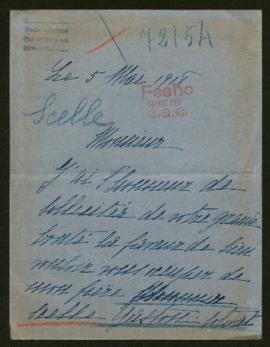 72154
Le 5 Mai 1918
Fecho
C.G.C.
Scelle
Monsieur
J'ai l'honneur de
solliciter de votre grande
bonté la faveur de bien
vouloir vous occuper de
mon frère
Scelle Gustave soldat